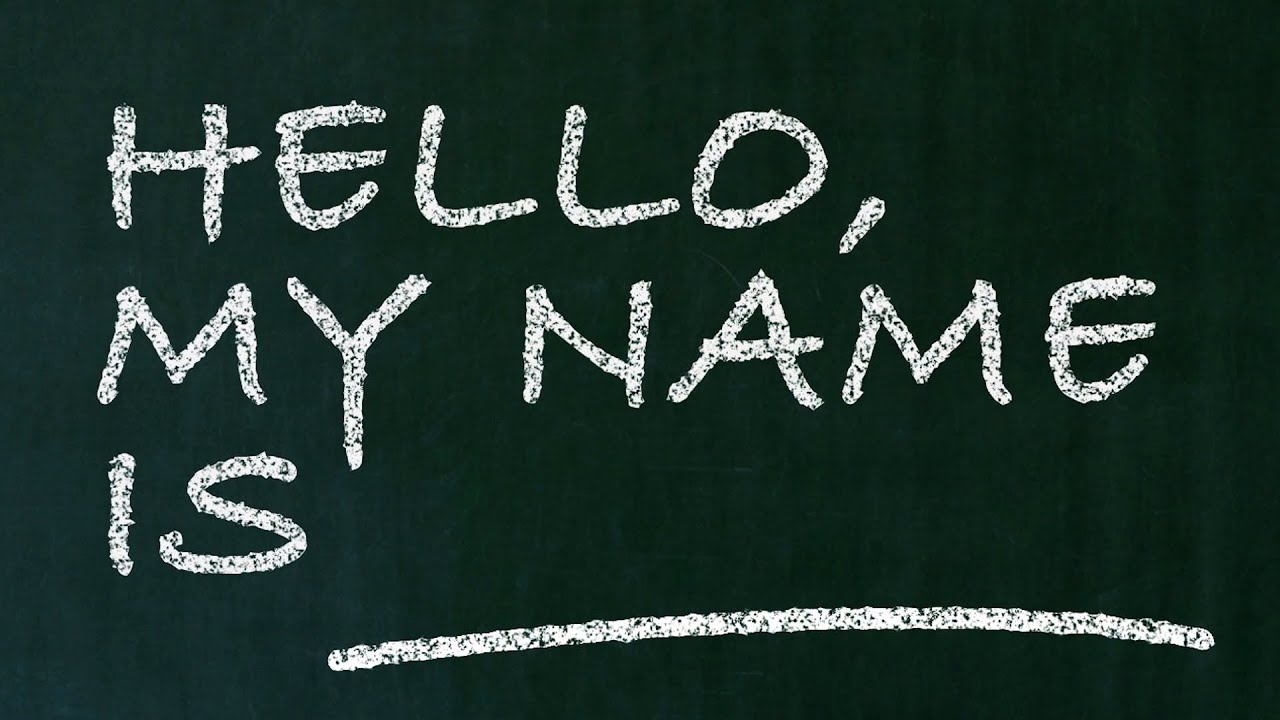 HELLO,
MY NAME
IS